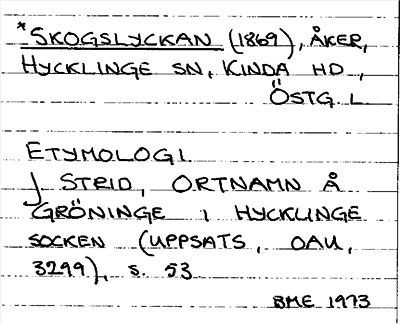 *SKOGSLYCKAN (1869), ÅKER,
HYCKLINGE SN, KINDA HD,
ÖSTG. L.
ETYMOLOGI.
J. STRID, ORTNAMN Å
GRÖNINGE I HYCKLINGE
SOCKEN (UPPSATS, OAU,
3299), S. 53
BME 1973